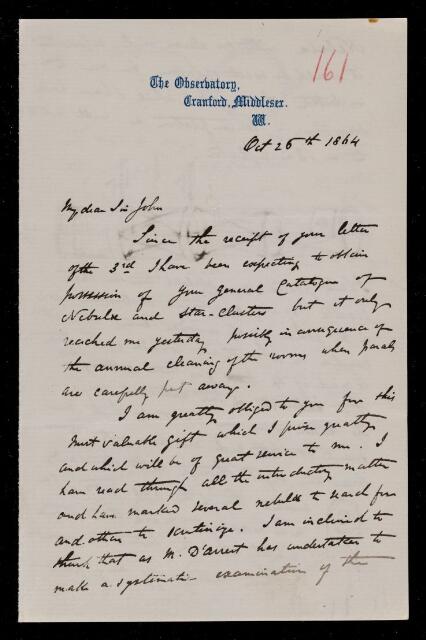 161
The Observatory,
Cranford, Middlesex.
W.
Oct 26th 1864
My dear Sir John
Since the receipt of your letter
of the 3rd I have been expecting to obtain
possession of your General Catalogue of
Nebulæ and Star-Clusters but it only
reached me yesterday possibly in consequence of
the annual cleaning of the rooms when parcels
are carefully put away.
I am greatly obliged to you for this
most valuable gift which I prize greatly
and which will be of great service to me. I
have read through all the introductory matter
and have marked several nebulæ to search for
and others to scrutinize. I am inclined to
think that as M. D'Arrest has undertaken to
make a systematic examination of the